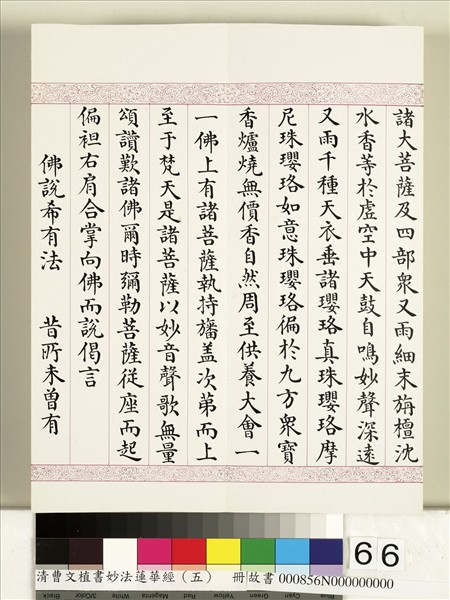 諸大菩薩及四部衆又雨細末旃檀沈
水香等於虛空中天鼓自鳴妙聲深遠
又雨千種天衣垂諸瓔珞真珠瓔珞摩
尼珠瓔珞如意珠瓔珞徧於九方衆寶
香爐燒無價香自然周至供養大會一
一佛上有諸菩薩執持旛盖次第而上
至于梵天是諸菩薩以妙音聲歌無量
頌讚歎諸佛爾時彌勒菩薩從座而起
偏袒右肩合掌向佛而說偈言
佛說希有法 昔所未曾有
66
Black 3/Color White Magenta Red Yellow Green Cyan Blue
清曹文植書妙法蓮華經（五） 冊故書 000856N000000000